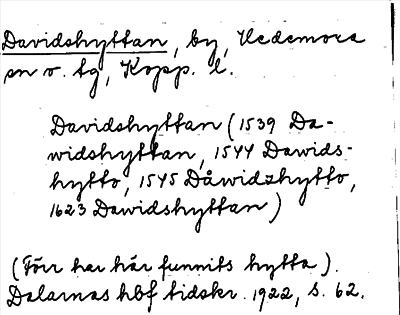 Davidshyttan, by, Hedemora
sn o. tg, Kopp. l.
Davidshyttan (1539 Da-
widshyttan, 1544 Dawids-
hytto, 1545 Dåwidzhytto,
1623 Dawidshyttan)
(Förr har här funnits hytta).
Dalarnas hbf tidskr. 1922, s. 62.